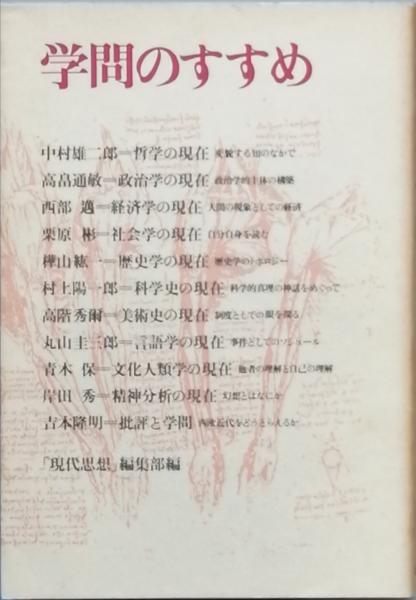 学問のすすめ
中村雄二郎=哲学の現在 変貌する知のなかで
高畠通敏=政治学の現在 政治学的主体の構築
西部 邁=経済学の現在 人間の現象としての経済
栗原 彬=社会学の現在 自分自身を読む
樺山紘一=歴史学の現在 歴史学のトポロジー
村上陽一郎=科学史の現在 科学的真理の神話をめぐって
高階秀爾=美術史の現在 制度としての眼を探る
丸山圭三郎=言語学の現在 事件としてのソシュール
青木 保=文化人類学の現在 他者の理解と自己の理解
岸田 秀=精神分析の現在 幻想とはなにか
吉本隆明=批評と学問 西欧近代をどうとらえるか
「現代思想」編集部編